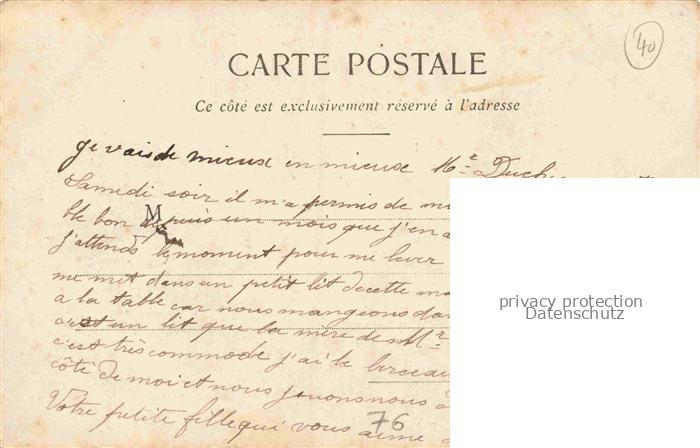 40
CARTE POSTALE
Ce côté est exclusivement réservé à l'adresse
Je vais de mieux en mieux Mr Duch
Samedi soir il m'a permis de m
ble bon depuis un mois que j'en a
M
j'attends le moment pour me lever
me met dans un petit lit de cette ma
à la table car nous mangeons dan
c'est un lit que la mère de Mr
c'est très commode j'ai le berceau
côté de moi et nous jouons nous
Votre petite fille qui vous aime
76
privacy protection
Datenschutz